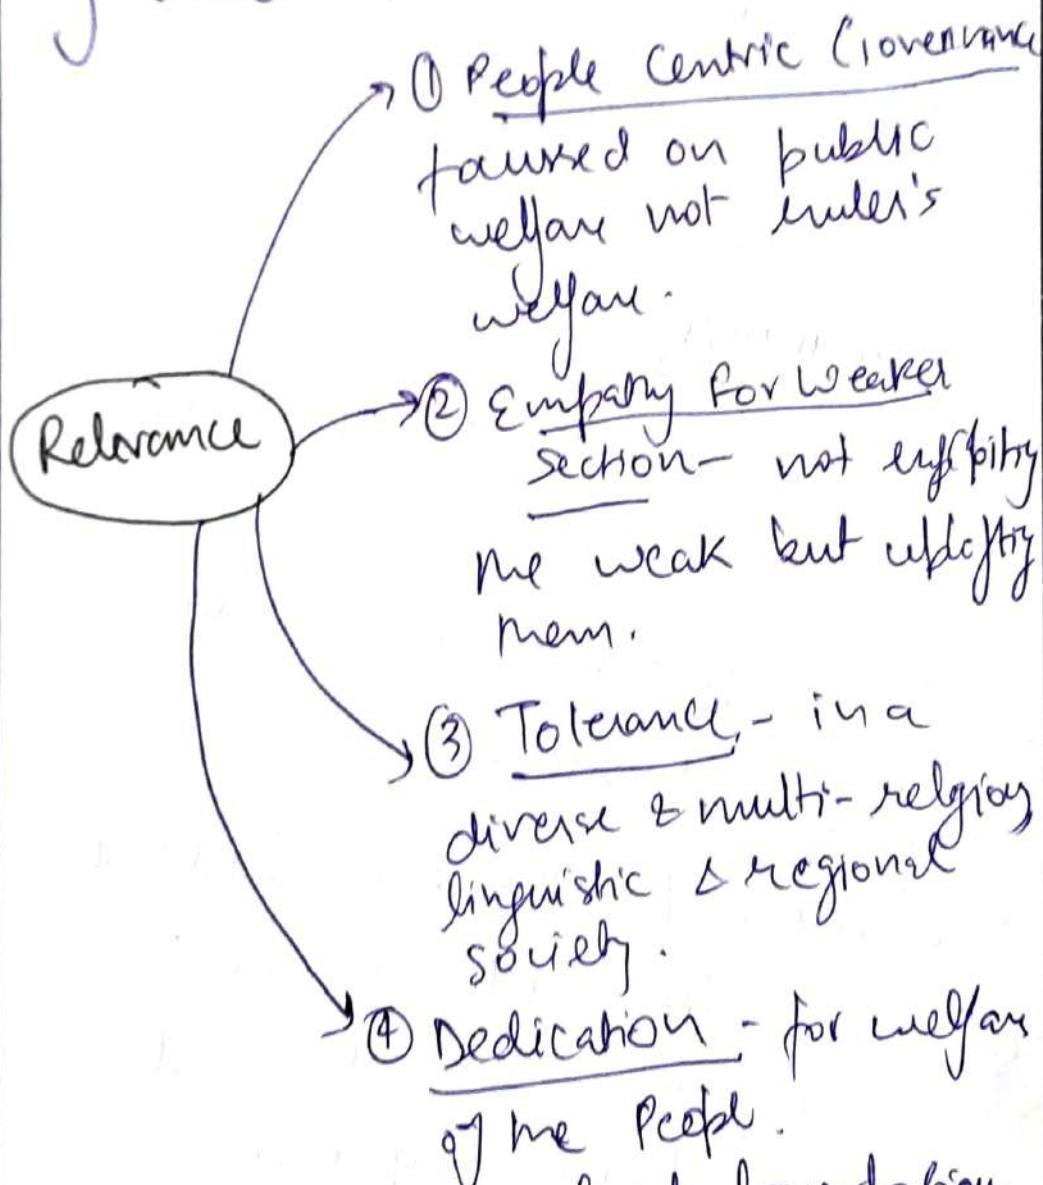 ① People Centric Governance
focused on public
welfare not ruler's
welfare.
Relevance
② Empathy for Weaker
section - not exploiting
the weak but uplifting
them.
③ Tolerance - in a
diverse & multi-religious
linguistic & regional
society.
④ Dedication - for welfare
of the People.